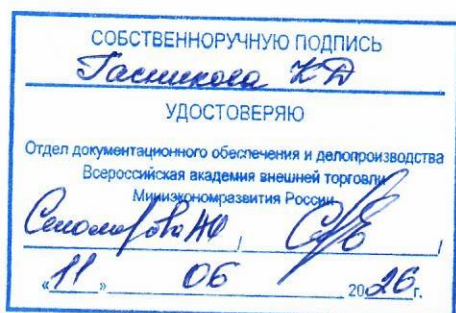 СОБСТВЕННОРУЧНУЮ ПОДПИСЬ
Гасникова КД
УДОСТОВЕРЯЮ
Отдел документационного обеспечения и делопроизводства
Всероссийская академия внешней торговли
Минэкономразвития России
/ /
«11» 06 2026 г.